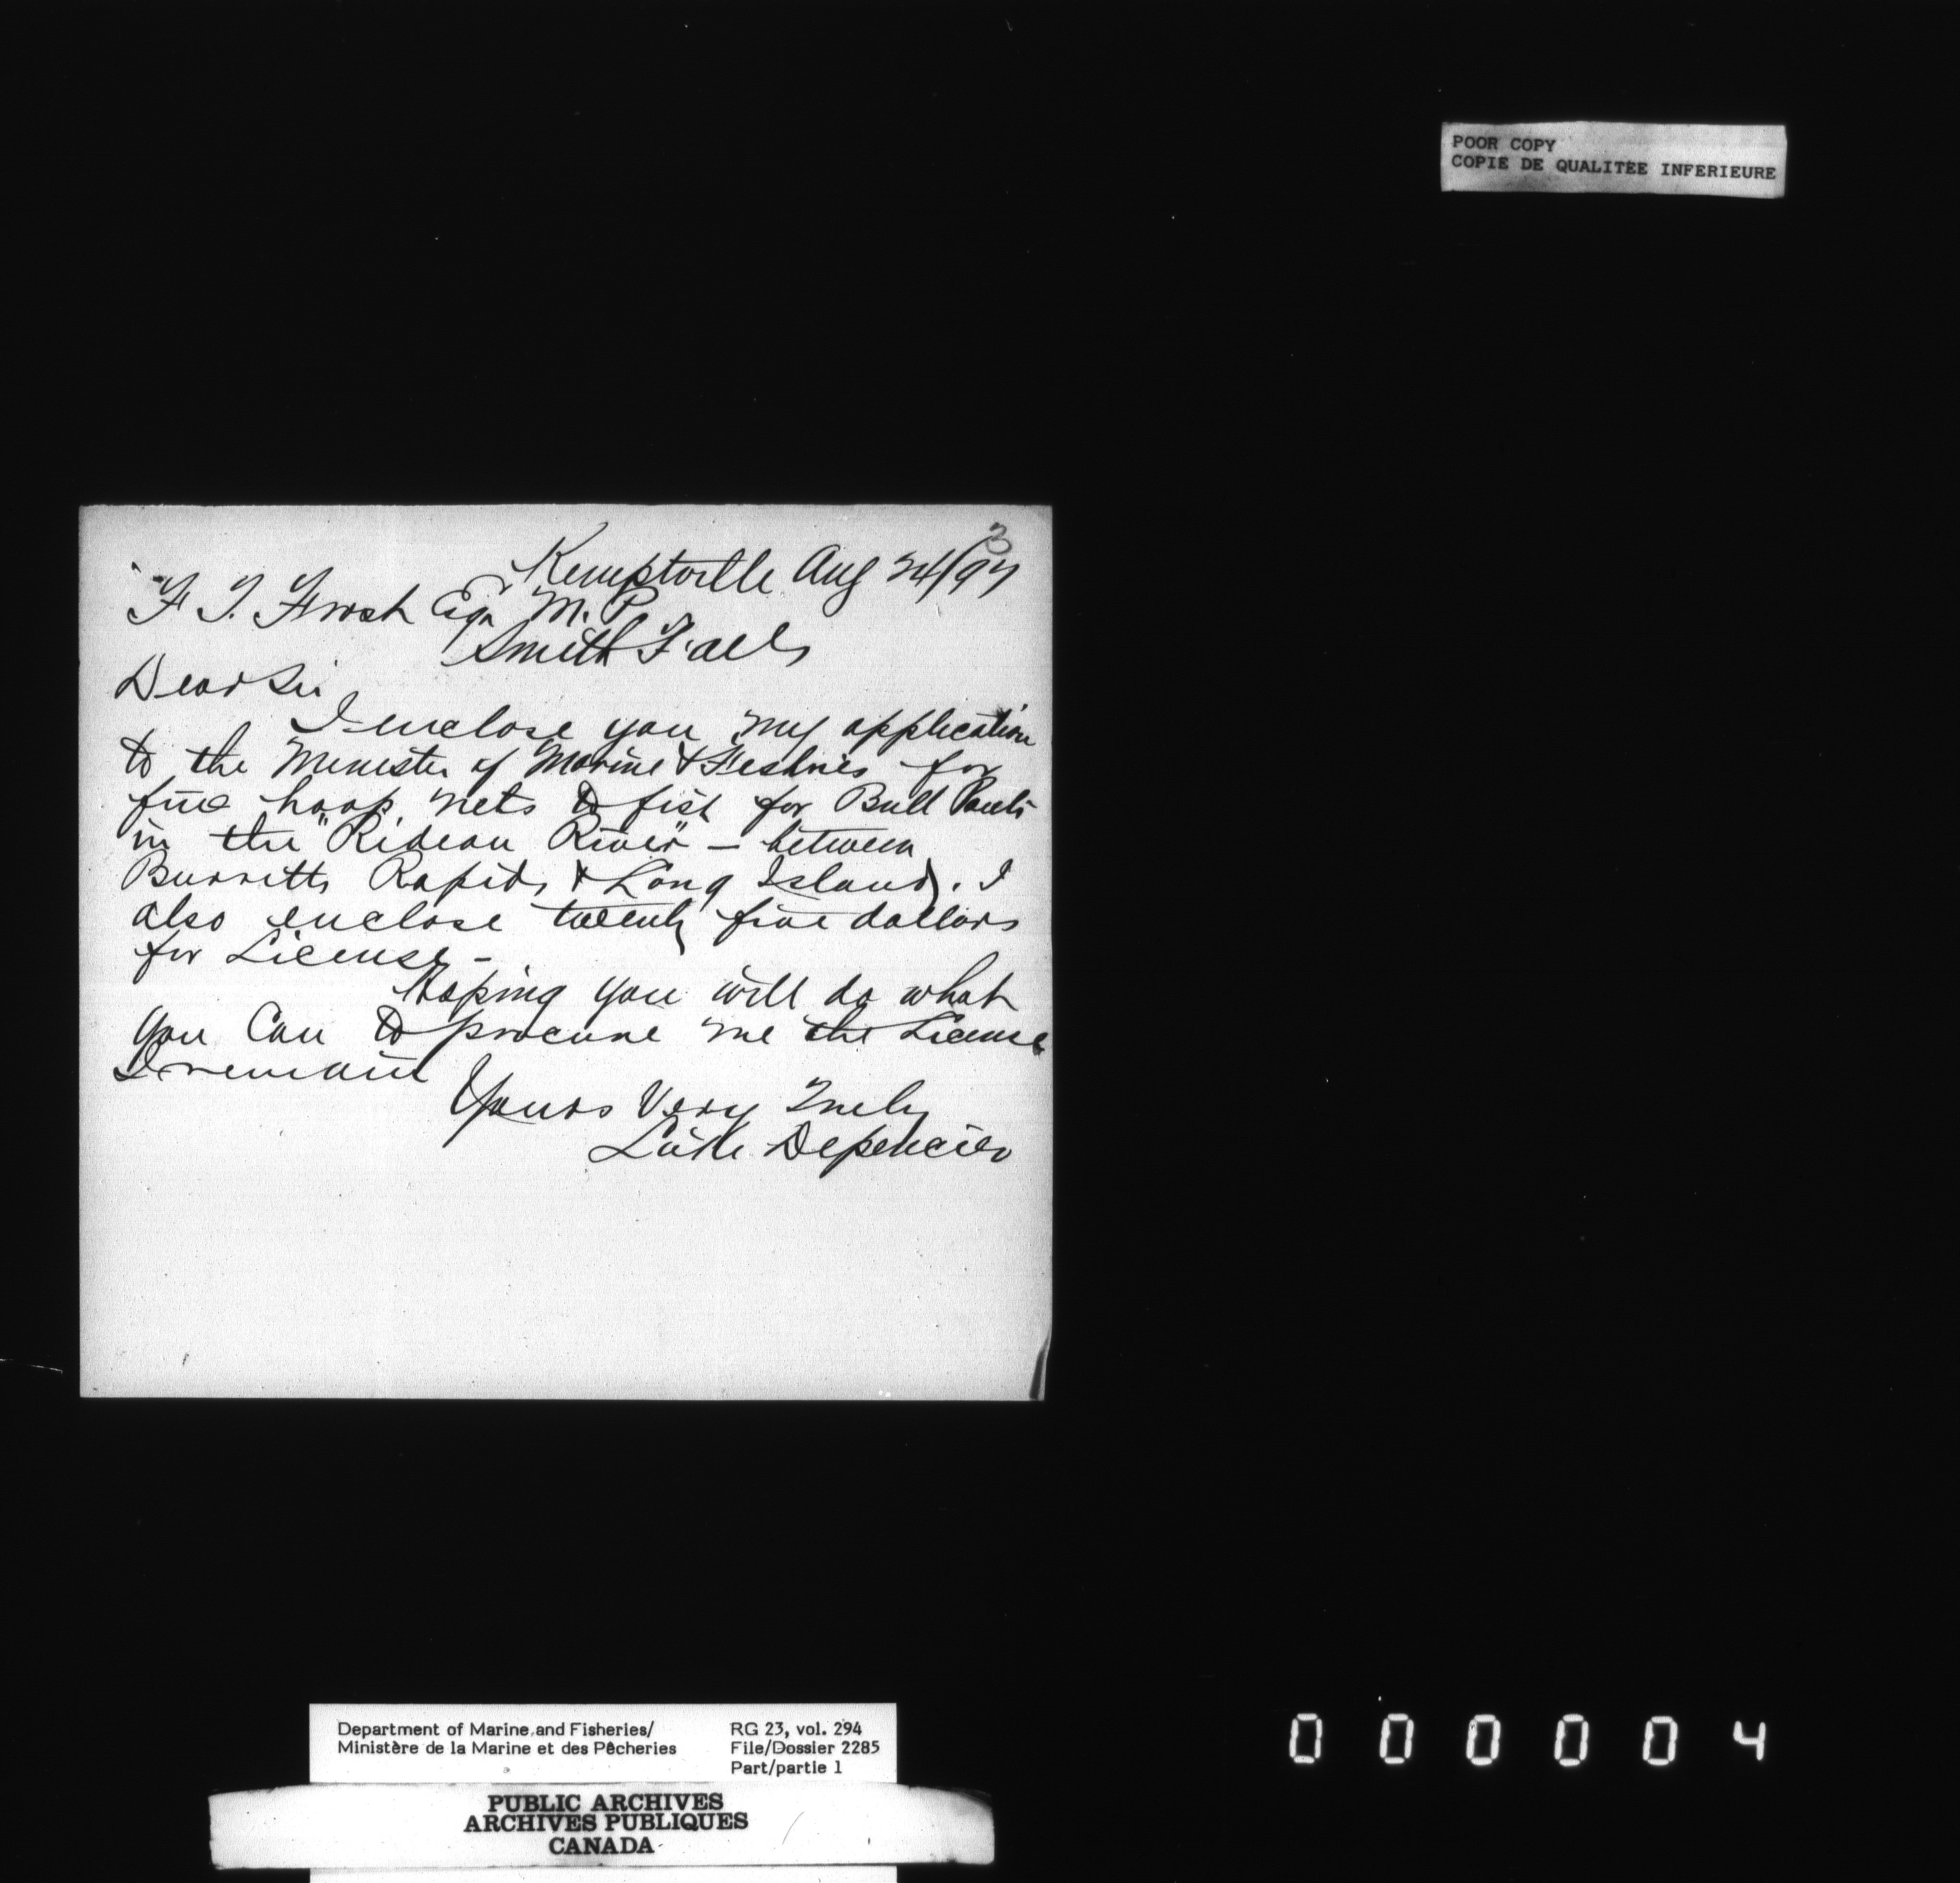 POOR COPY
COPIE DE QUALITEE INFERIEURE
3
Kemptville Aug 24/97
F T. Frost Esqr M.P.
Smith Falls
Dear Sir
I enclose you my application
to the Minister of Marine & Fisheries for
five hoop nets to fish for Bull Pouts
in the "Rideau River" - between
Burritts Rapids & Long Island. I
also enclose twenty five dollars
for License -
Hoping you will do what
you Can to procure me the License
I remain
Yours Very Truly
Luke Depencier
Department of Marine and Fisheries/
Ministère de la Marine et des Pêcheries
RG 23, vol. 294
File/Dossier 2285
Part/partie 1
PUBLIC ARCHIVES
ARCHIVES PUBLIQUES
CANADA
000004